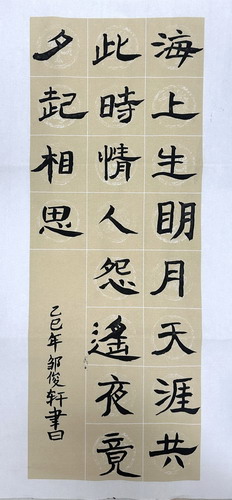 海上生明月天涯共
此時情人怨遙夜竟
夕起相思
乙巳年邹俊轩書